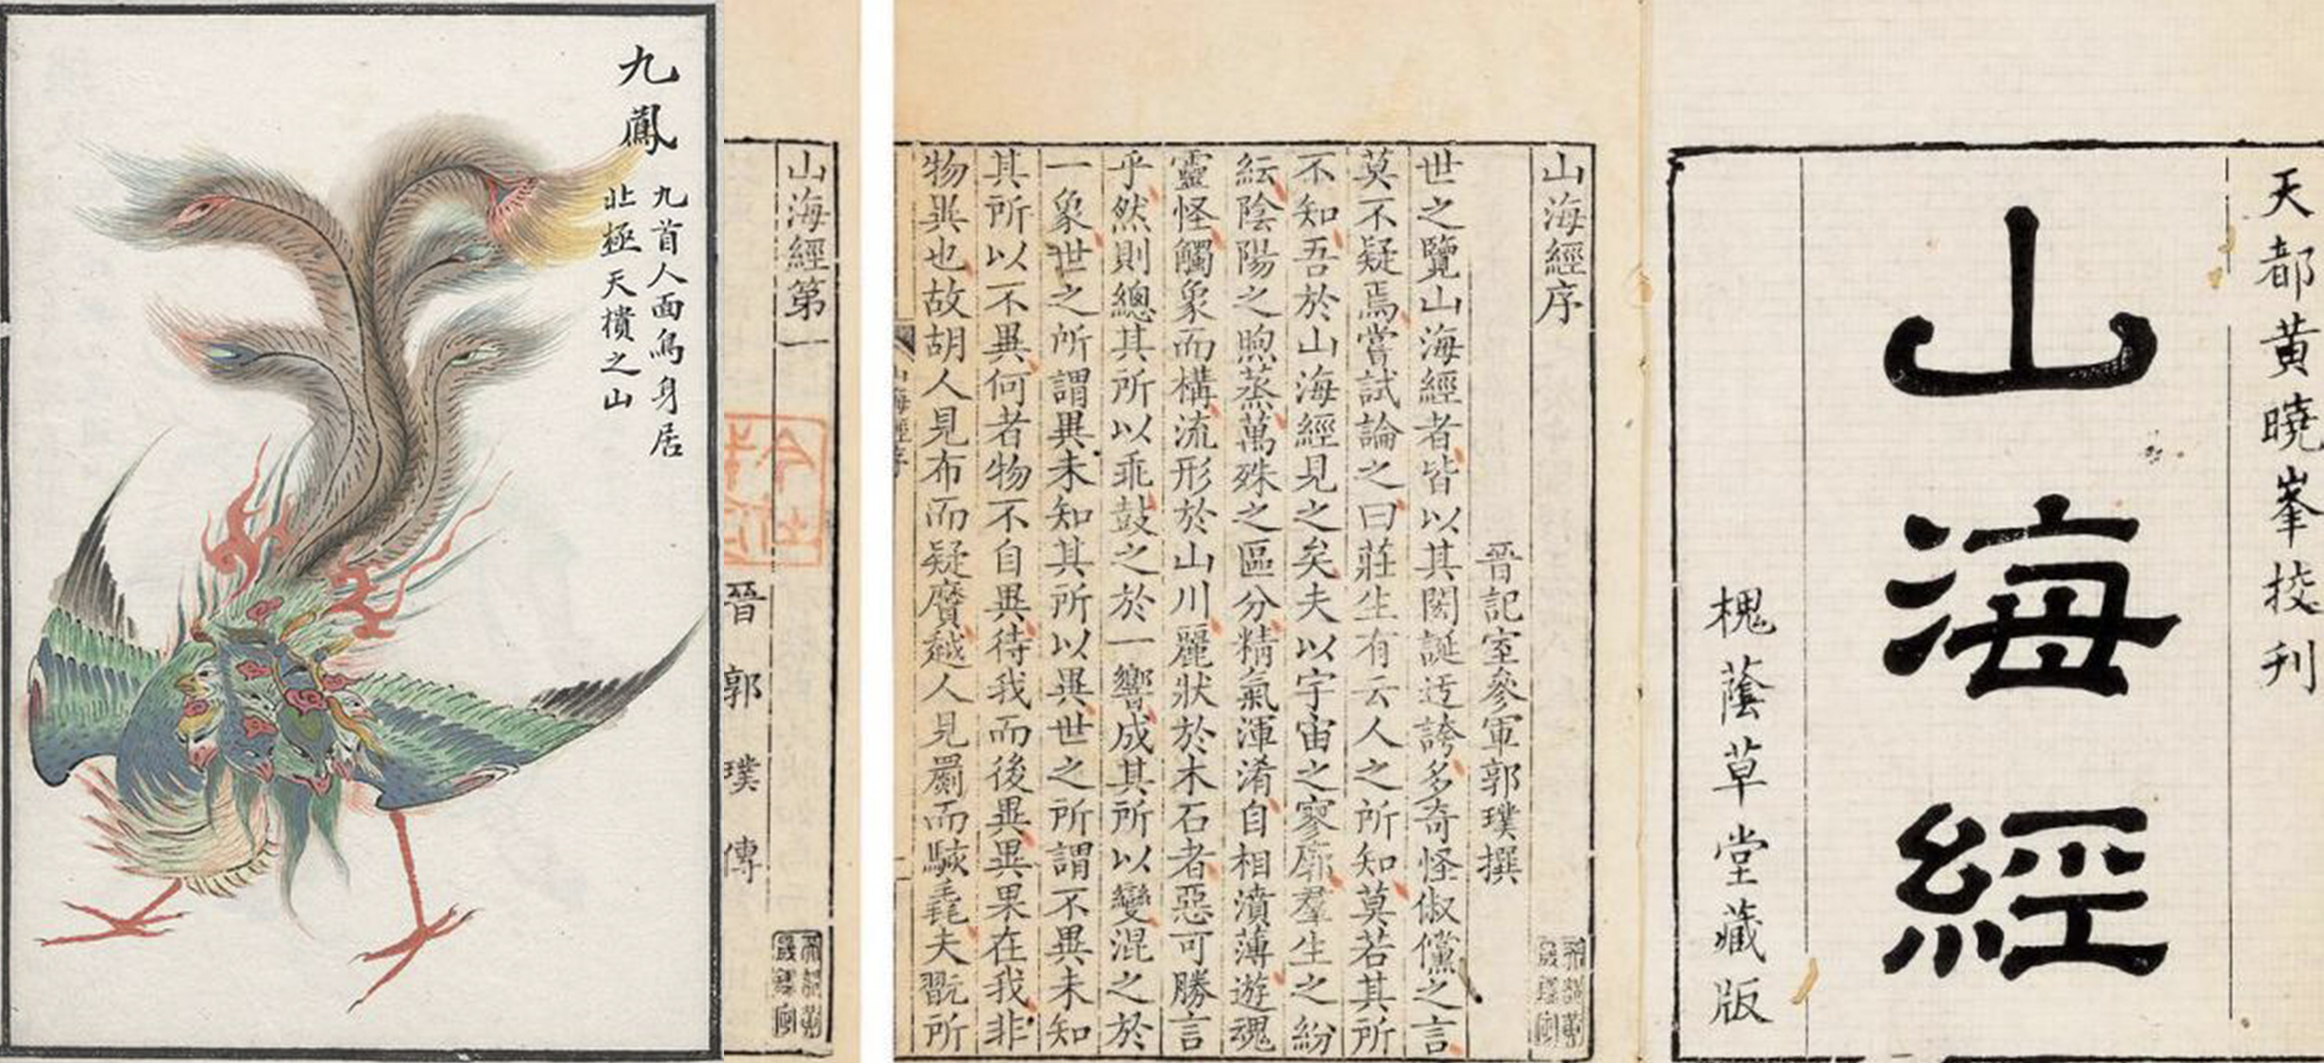 天都黄曉峯挍刊
山海經
槐蔭草堂藏版
山海經序
晉記室參軍郭璞撰
世之覽山海經者皆以其閎誕迂誇多奇怪俶儻之言
莫不疑焉嘗試論之曰莊生有云人之所知莫若其所
不知吾於山海經見之矣夫以宇宙之寥廓羣生之紛
紜陰陽之煦蒸萬殊之區分精氣渾淆自相濆薄遊魂
靈怪觸象而構流形於山川麗狀於木石者惡可勝言
乎然則總其所以乖鼓之於一響成其所以變混之於
一象世之所謂異未知其所以異世之所謂不異未知
其所以不異何者物不自異待我而後異異果在我非
物異也故胡人見布而疑黂越人見罽而駭毳夫翫所
山海經序
山海經第一
晉郭璞傳
九鳳
九首人面鳥身居
北極天樻之山